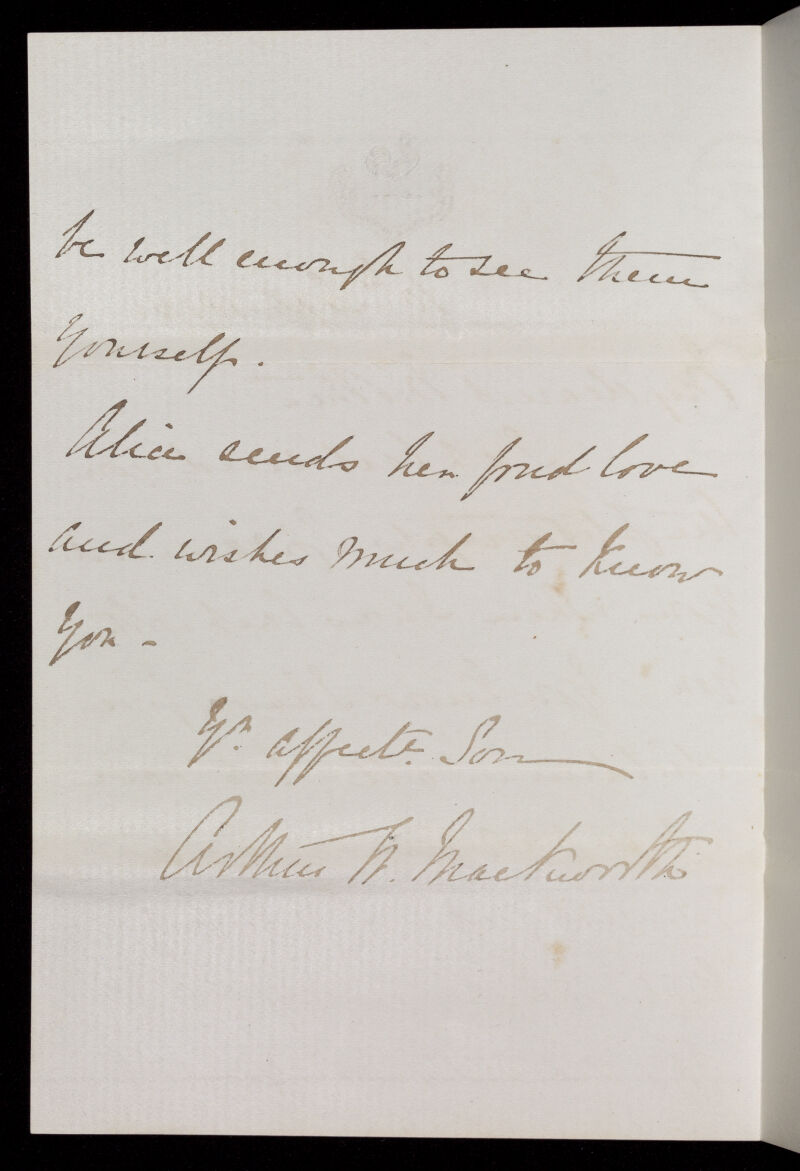 be well enough to see them
yourself.
Alice sends her fond love
and wishes much to know
you -
Yr. affecte. Son
Arthur W. Mackworth